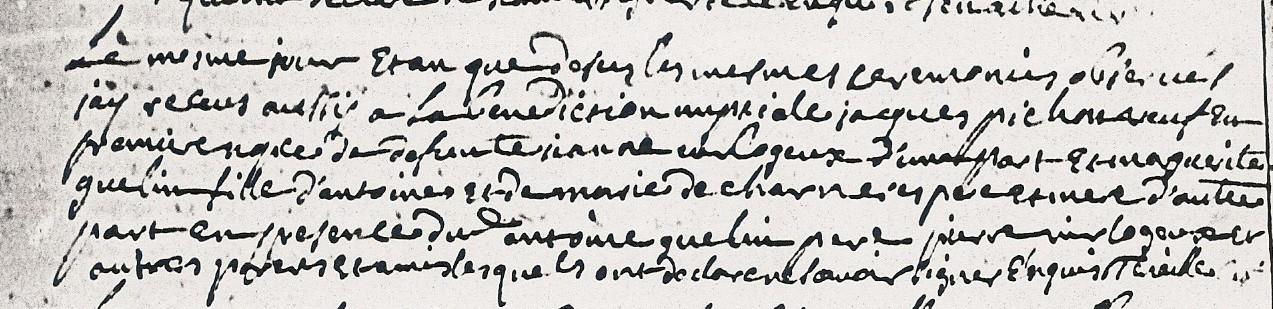 Le mesme jour Et an que desus les mesmes ceremonies observees
jay receus aussy a la benediction nuptiale jacques pichon veuf En
premire nopce de defunte jeanne d'une part Et marguerite
quelin fille d'antoine Et de marie de charne ses pere et mere d'autre
part En presence du d antoine quelin pere pierre Et
autres parens Et amis lesquels ont declare ne savoir signer Enquis